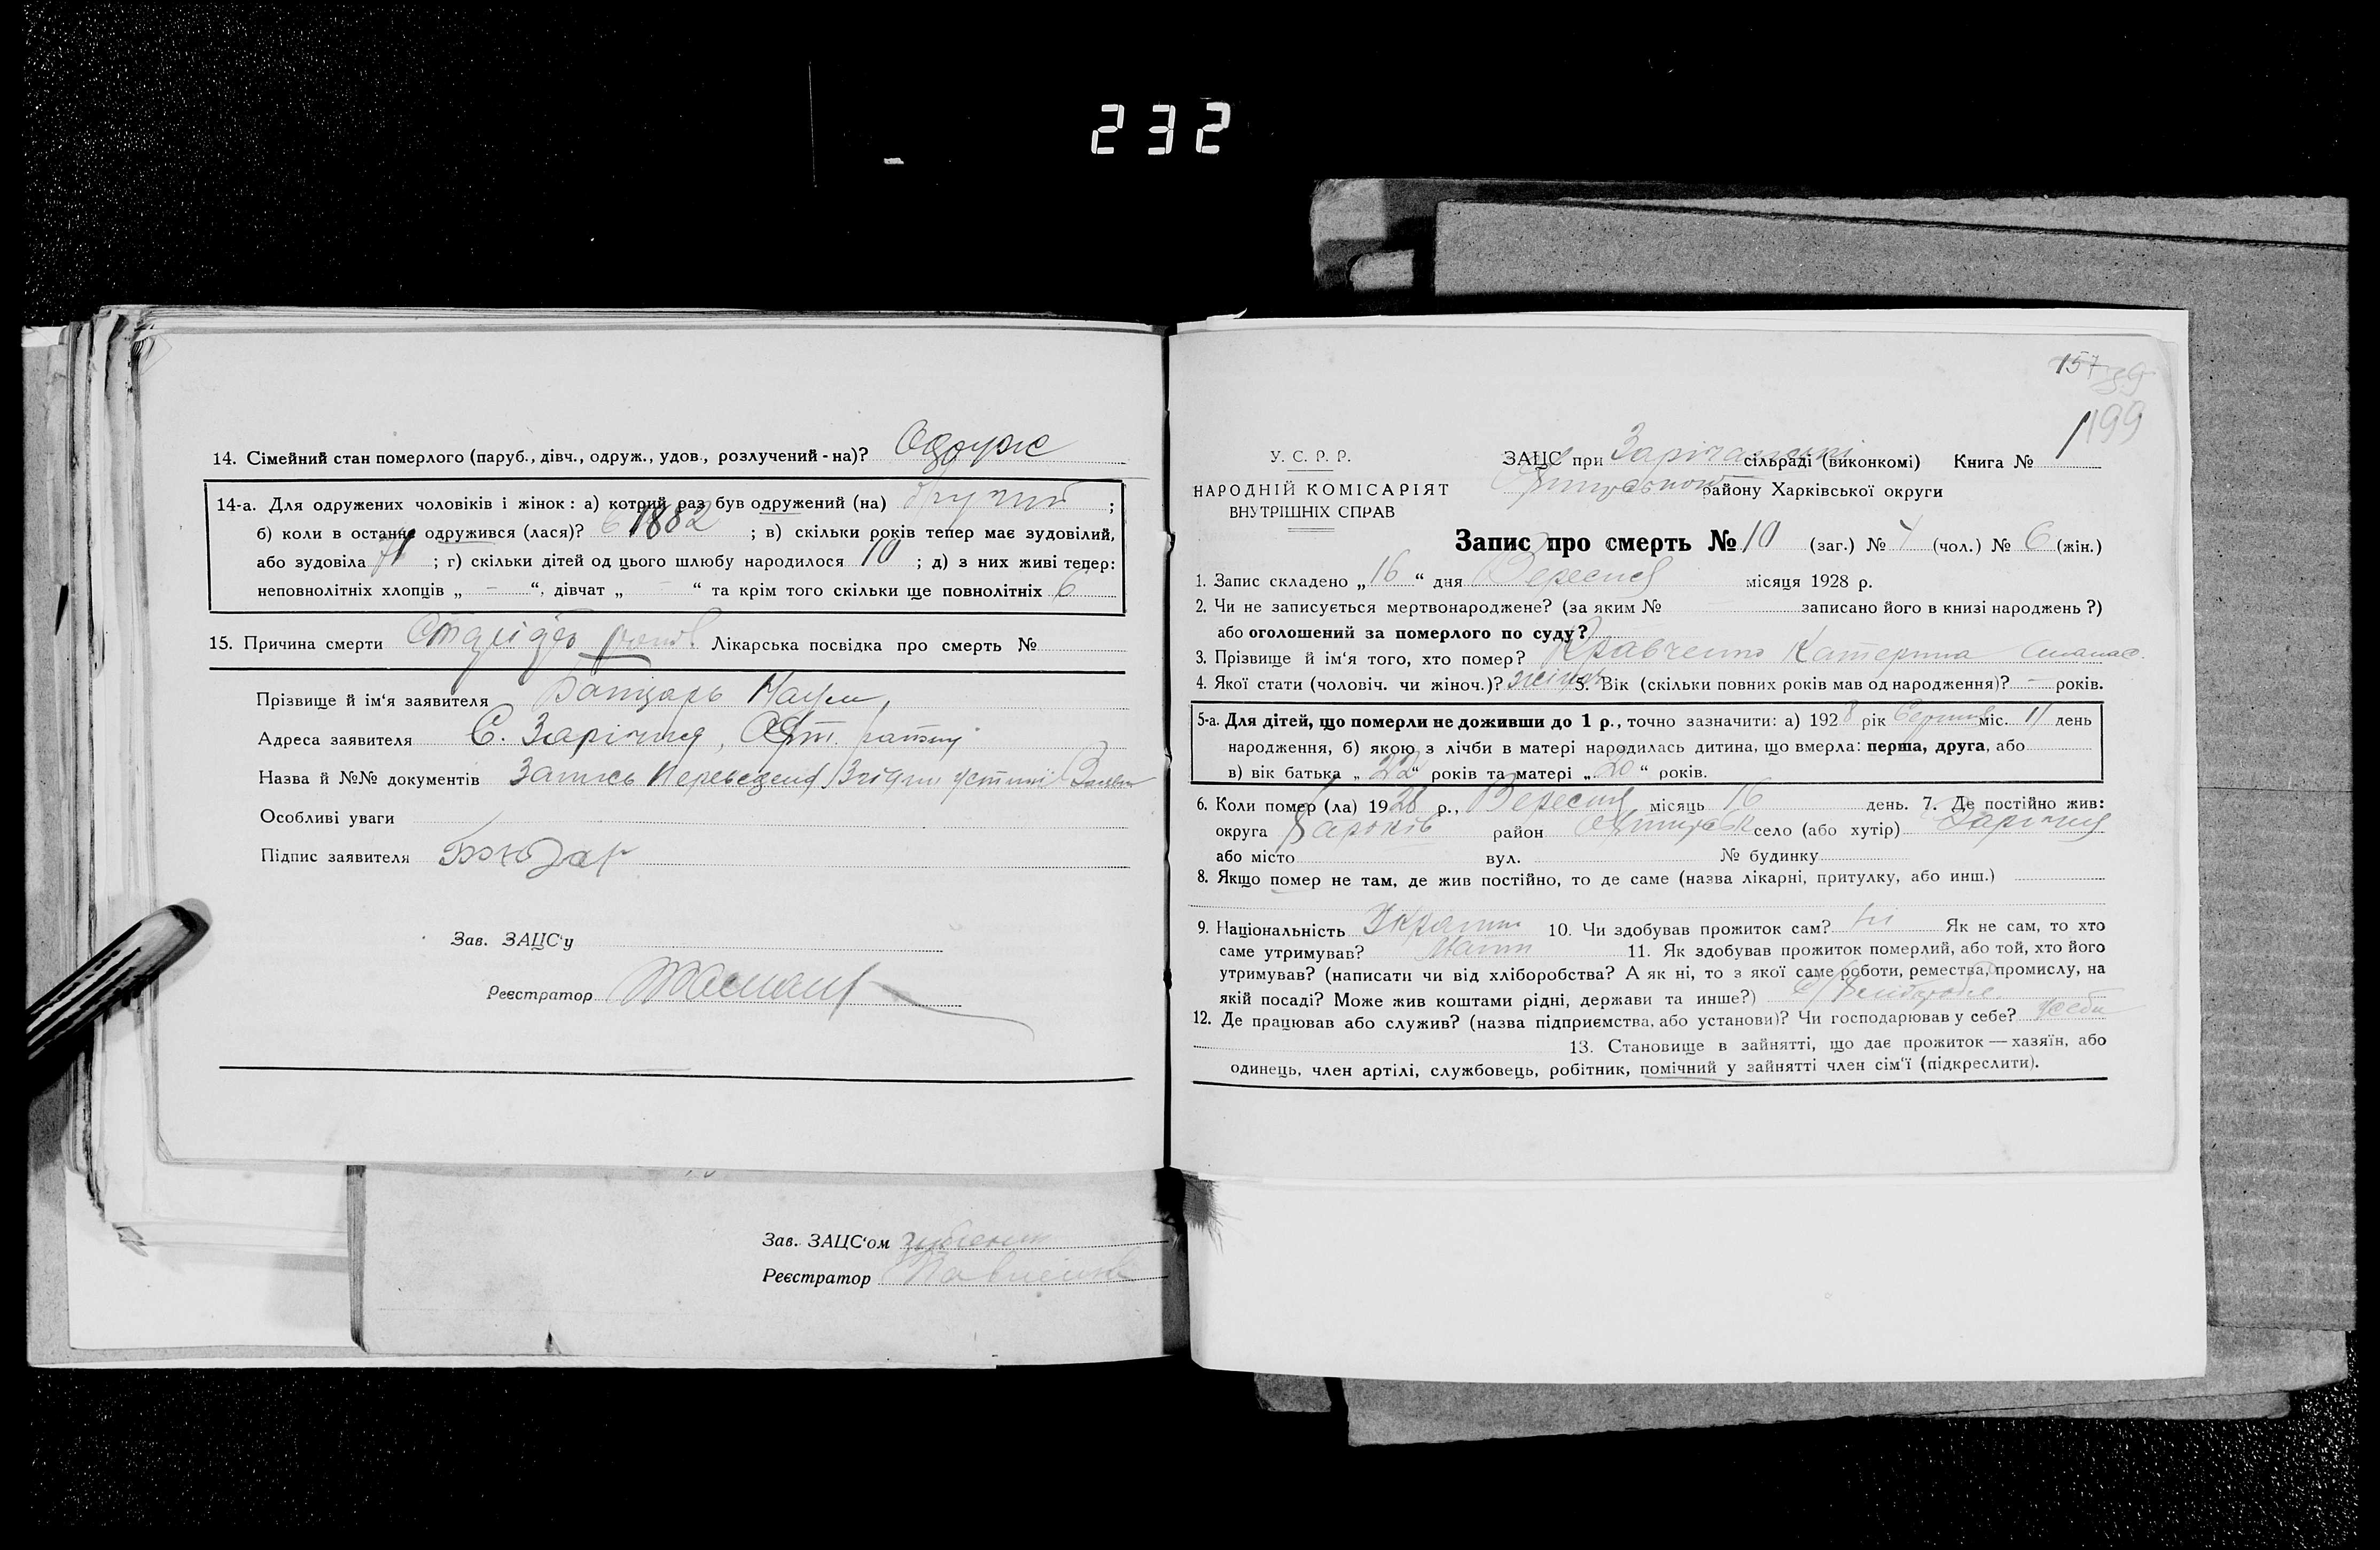 232
14. Сімейний стан померлого (паруб., дівч., одруж., удов., розлучений - на)? Одруж
14-а. Для одружених чоловіків і жінок: а) котрий раз був одружений (на) ;
б) коли в останнє одружився (лася)? в 1882 ; в) скільки років тепер має зудовілий,
або зудовіла 71 ; г) скільки дітей од цього шлюбу народилося 10 ; д) з них живі тепер:
неповнолітніх хлопців „ – “, дівчат „ – “ та крім того скільки ще повнолітніх 6
15. Причина смерти Лікарська посвідка про смерть №
Прізвище й ім'я заявителя Наум
Адреса заявителя С. Зарічня, Охт. району
Назва й №№ документів Запись Переведена Згідно устної Заяви
Особливі уваги
Підпис заявителя Бондар
Зав. ЗАЦС'у
Реєстратор
Зав. ЗАЦС'ом
Реєстратор
157
199
У. С. Р. Р.
НАРОДНІЙ КОМІСАРІЯТ
ВНУТРІШНІХ СПРАВ
ЗАЦС при сільраді (виконкомі) Книга № 1
району Харківської округи
Запис про смерть № 10 (заг.) № 4 (чол.) № 6 (жін.)
1. Запис складено „ 16 “ дня Вересня місяця 1928 р.
2. Чи не записується мертвонароджене? (за яким № записано його в книзі народжень?)
або оголошений за померлого по суду?
3. Прізвище й ім'я того, хто помер? Кравченко Катерина
4. Якої стати (чоловіч. чи жіноч.)? жіноч 5. Вік (скільки повних років мав од народження)? – років.
5-а. Для дітей, що померли не доживши до 1 р., точно зазначити: а) 1928 рік Серпня міс. 11 день
народження, б) якою з лічби в матері народилась дитина, що вмерла: перша, друга, або
в) вік батька „ 22 “ років та матері „ 20 “ років.
6. Коли помер (ла) 1928 р., Вересня місяць 16 день. 7. Де постійно жив:
округа Харків район Охтирськ село (або хутір) Зарічня
або місто вул. № будинку
8. Якщо помер не там, де жив постійно, то де саме (назва лікарні, притулку, або инш.)
9. Національність Україн 10. Чи здобував прожиток сам? Ні Як не сам, то хто
саме утримував? Мати 11. Як здобував прожиток померлий, або той, хто його
утримував? (написати чи від хліборобства? А як ні, то з якої саме роботи, ремества, промислу, на
якій посаді? Може жив коштами рідні, держави та инше?)
12. Де працював або служив? (назва підприємства, або установи)? Чи господарював у себе? у себе
13. Становище в зайнятті, що дає прожиток — хазяїн, або
одинець, член артілі, службовець, робітник, помічний у зайнятті член сім'ї (підкреслити).